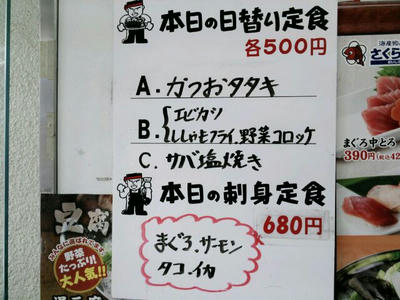 本日の日替り定食
各500円
A.かつおタタキ
B.エビカツ
ししゃもフライ.野菜コロッケ
C.サバ塩焼き
本日の刺身定食
680円
まぐろ.サーモン
タコ.イカ
豆腐
みんなに喜ばれてます
野菜
たっぷり!
大人気!!
さくら
まぐろ中とろ
390円